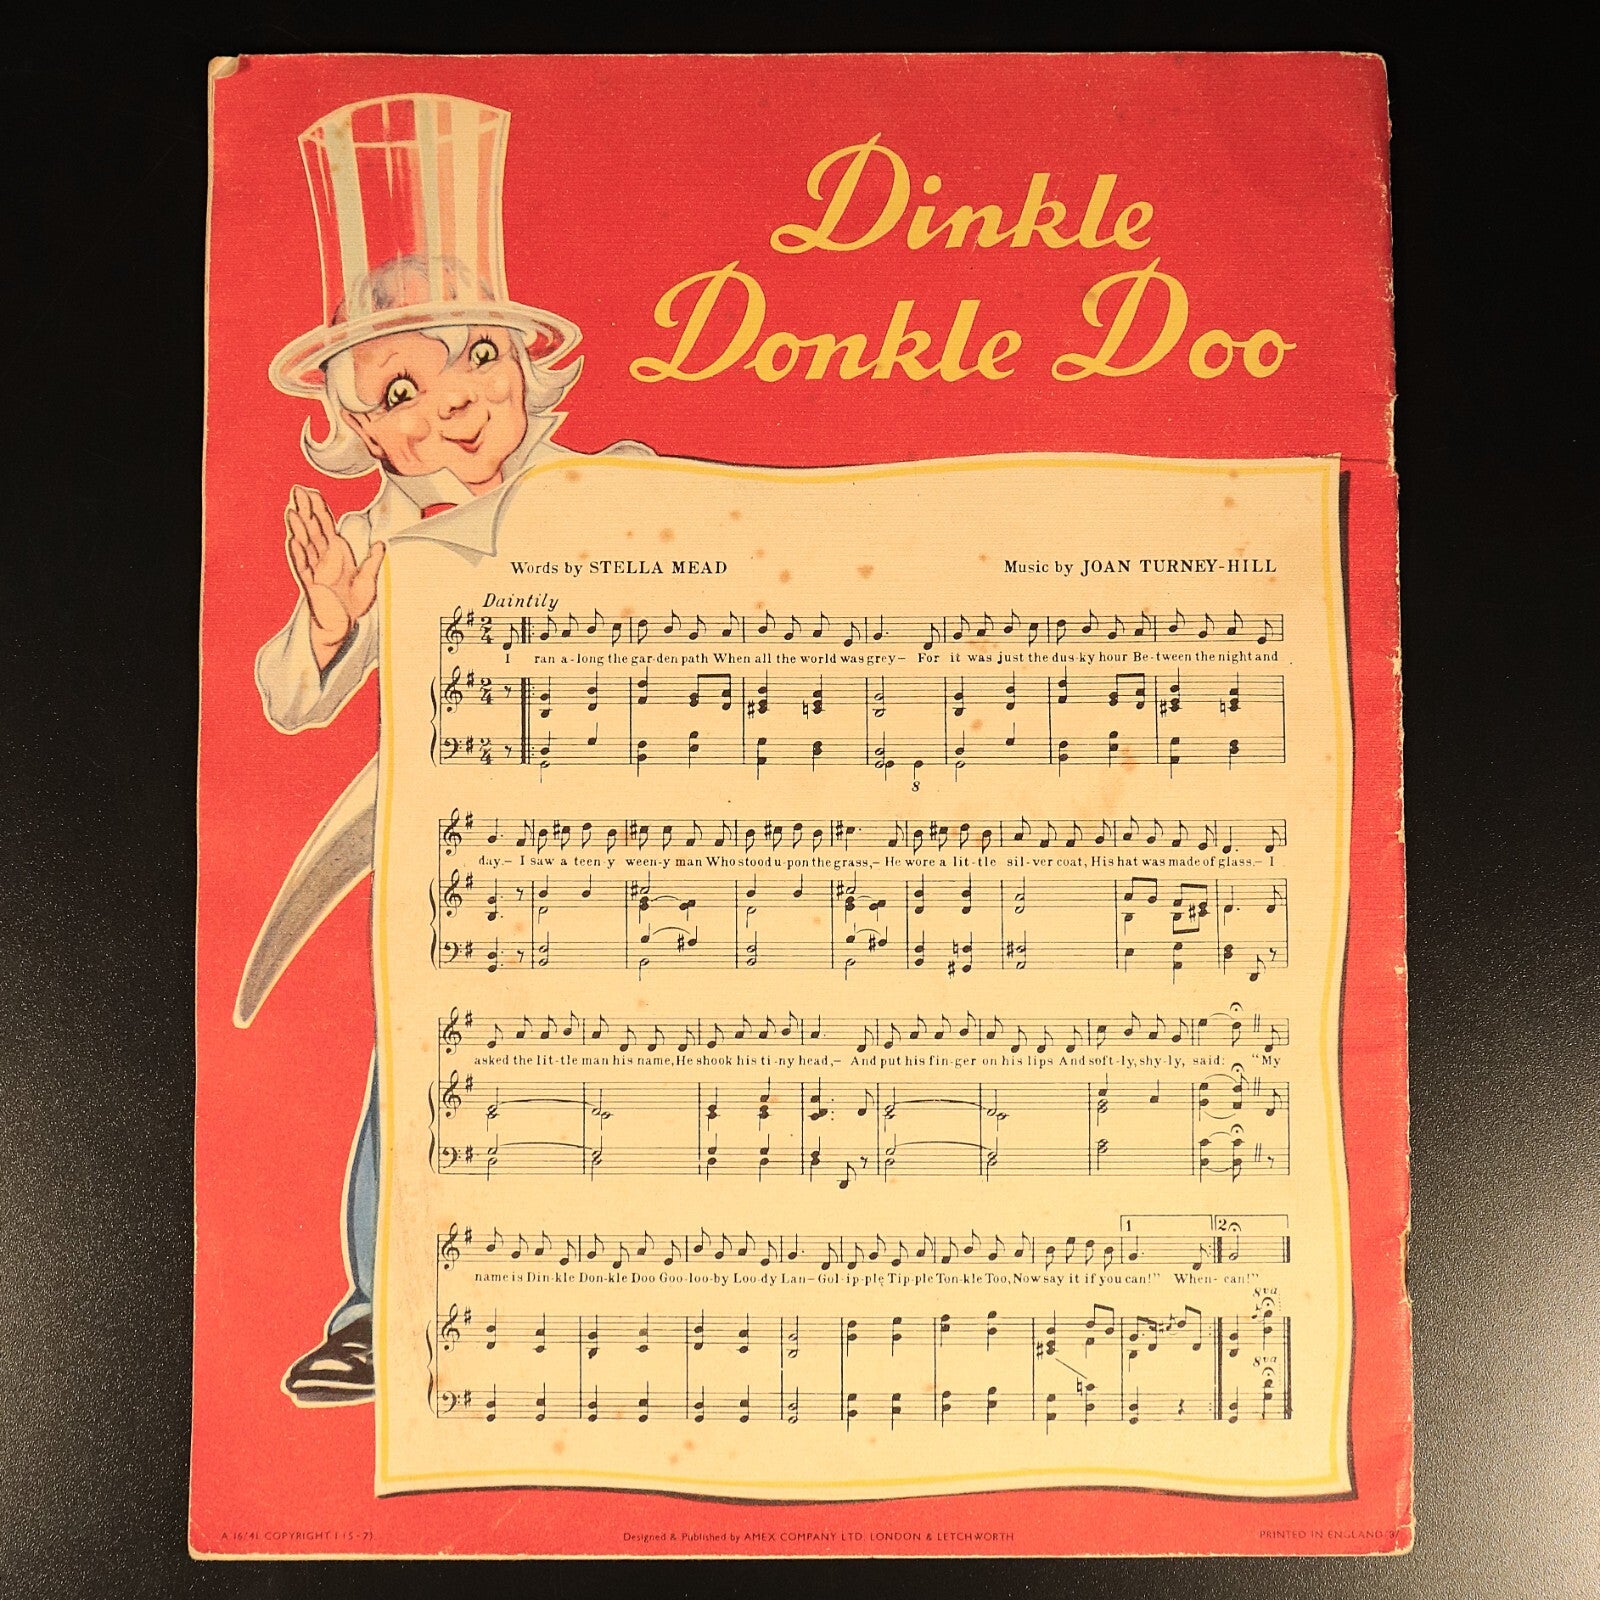 Dinkle
Donkle Doo
Words by STELLA MEAD
Music by JOAN TURNEY-HILL
Daintily
I ran a-long the gar-den path When all the world was grey– For it was just the dus-ky hour Be-tween the night and
8
day.– I saw a teen-y ween-y man Who stood u-pon the grass,– He wore a lit-tle sil-ver coat, His hat was made of glass.– I
asked the lit-tle man his name, He shook his ti-ny head,– And put his fin-ger on his lips And soft-ly, shy-ly, said: "My
1 2
name is Din-kle Don-kle Doo Goo-loo-by Loo-dy Lan– Gol-ip-ple Tip-ple Ton-kle Too, Now say it if you can!" When- can!"
8va
8va
COPYRIGHT
Designed & Published by AMEX COMPANY LTD. LONDON & LETCHWORTH
PRINTED IN ENGLAND